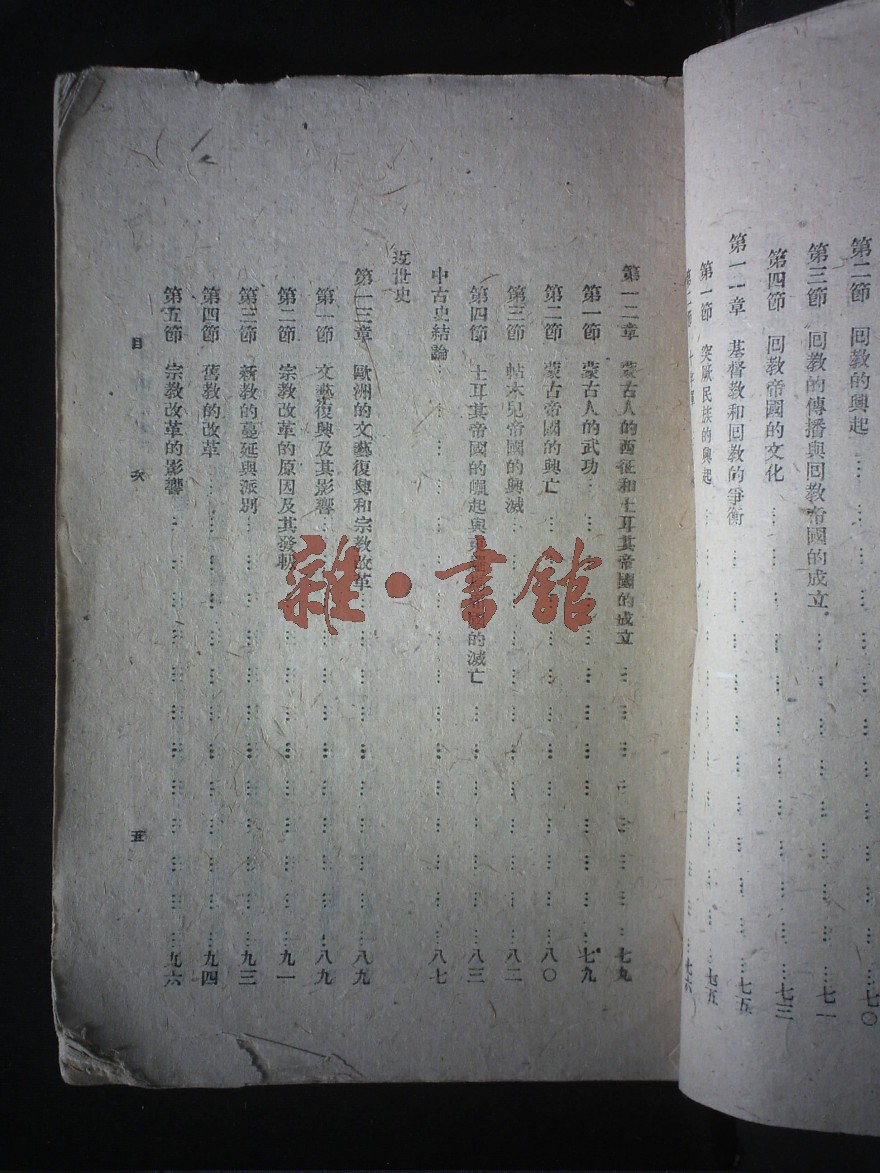 第二節 回教的興起 … … … … … … … …七〇
第三節 回教的傳播與回教帝國的成立 … … … … …七一
第四節 回教帝國的文化 … … … … … … …七三
第一一章 基督教和回教的爭衡 … … … … … … …七五
第一節 突厥民族的興起 … … … … … … …七五
第二節 … … … …七六
第一二章 蒙古人的西征和土耳其帝國的成立 … … … … …七九
第一節 蒙古人的武功 … … … … … … …七九
第二節 蒙古帝國的興亡 … … … … … … …八〇
第三節 帖木兒帝國的興滅 … … … … … … …八二
第四節 土耳其帝國的崛起與東 的滅亡 … … … …八三
中古史結論 … … … … … … … … …八七
近世史
第一三章 歐洲的文藝復興和宗教改革 … … … … … …八九
第一節 文藝復興及其影響 … … … … … … …八九
第二節 宗教改革的原因及其發 … … … … … …九一
第三節 新教的蔓延與派別 … … … … … … …九三
第四節 舊教的改革 … … … … … … … …九四
第五節 宗教改革的影響 … … … … … … …九六
目 次
五
雜·書館